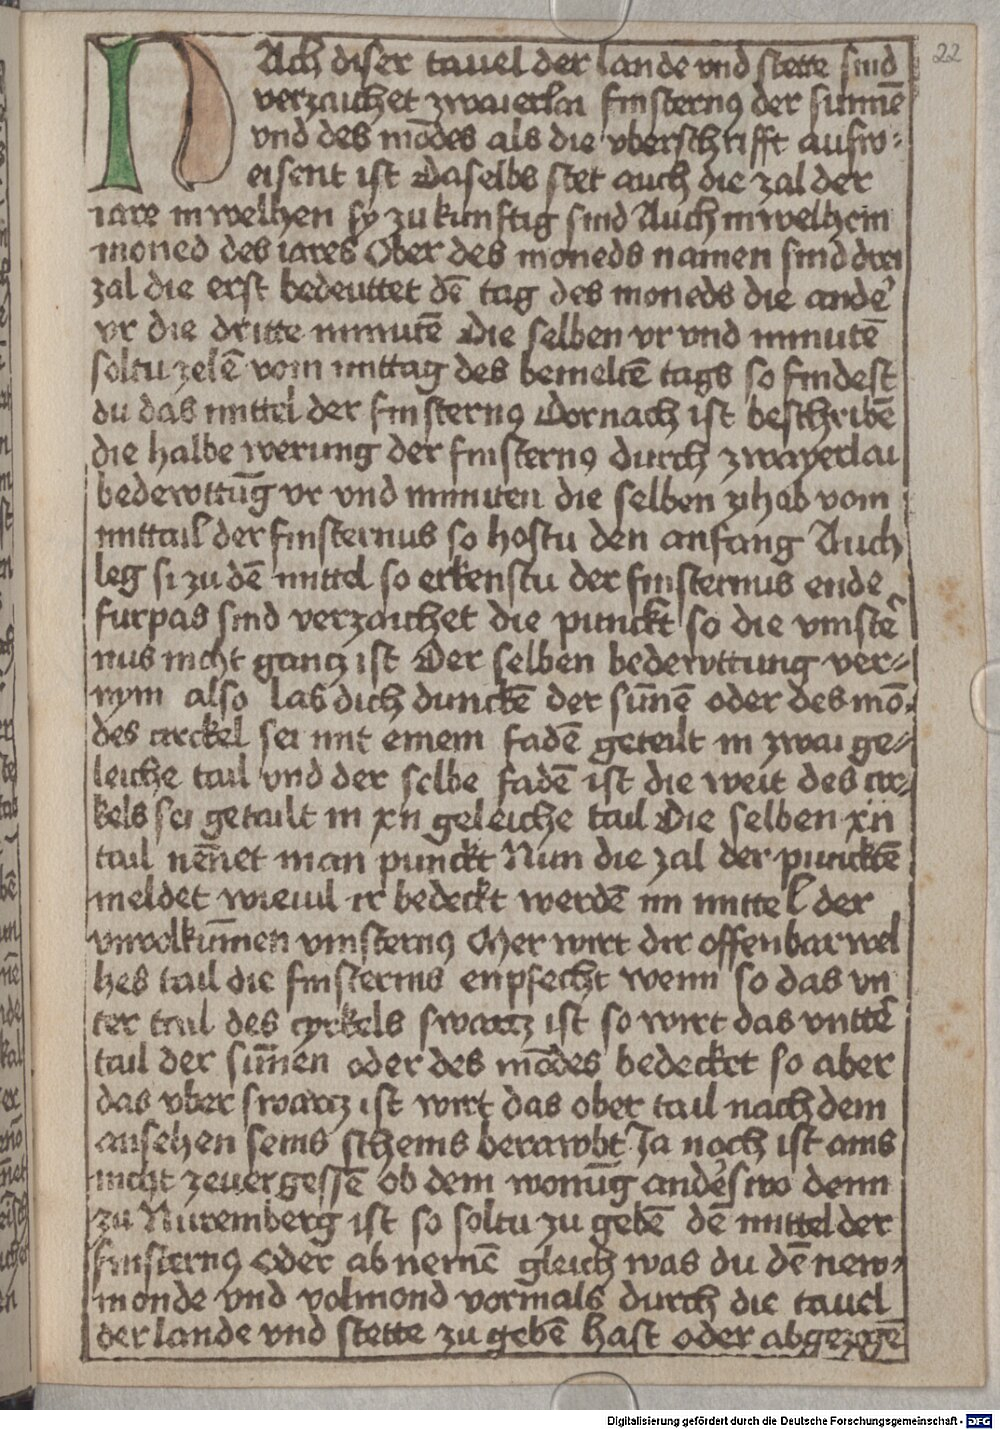 22
NAch diser tauel der lande vnd stette sind
verzaichet zwaierlai finsternus der sunnē
vnd des mōdes als die vberschrifft aufw-
eisent ist Daselbs stet auch die zal der
iare in welhen sy zu kunftig sind Auch in welhem
moned des iares Ober des moneds namen sind drei
zal die erst bedeuttet dē tag des moneds die ander
vr die dritte minutē Die selben vr vnd minutē
soltu zelē vom mittag des bemeltē tags so findest
du das mittel der finsternus Dornach ist beschribē
die halbe werung der finsternus durch zwayerlai
bedewttūg vr vnd minuten die selben zihab vom
mittail der finsternus so hostu den anfang Auch
leg si zu dē mittel so erkenstu der finsternus ende
furpas sind verzaichet die punckt so die vinster
nus nicht gantz ist Der selben bedewttung ver-
nym also las dich dunckē der sūnē oder des mō-
des circkel sei mit einem fadē geteilt in zwai ge-
leiche tail vnd der selbe fadē ist die weit des cir-
kels sei getailt in xii geleiche tail Die selben xii
tail nēnet man punckt Nun die zal der puncktē
meldet wieuil ir bedeckt werdē im mittel der
vnvolkūmen vinsternus Mer wirt dir offenbar wel
hes tail die finsternis enpfecht wenn so das vn
ter tail des cyrkels swartz ist so wirt das vntter
tail der sūnnen oder des mōdes bedeckt so aber
das vber swartz ist wirt das ober tail nach dem
ansehen seins scheins berawbt Ja noch ist ains
nicht zeuergessē ob dem wonūg anderswo denn
zu Nuremberg ist so soltu zu gebē dē mittel der
finsternus Oder ab nemē gleich was du dē new-
monde vnd volmond vormals durch die tauel
der lande vnd stette zu gebē hast oder abgezogē
Digitalisierung gefördert durch die Deutsche Forschungsgemeinschaft - DFG